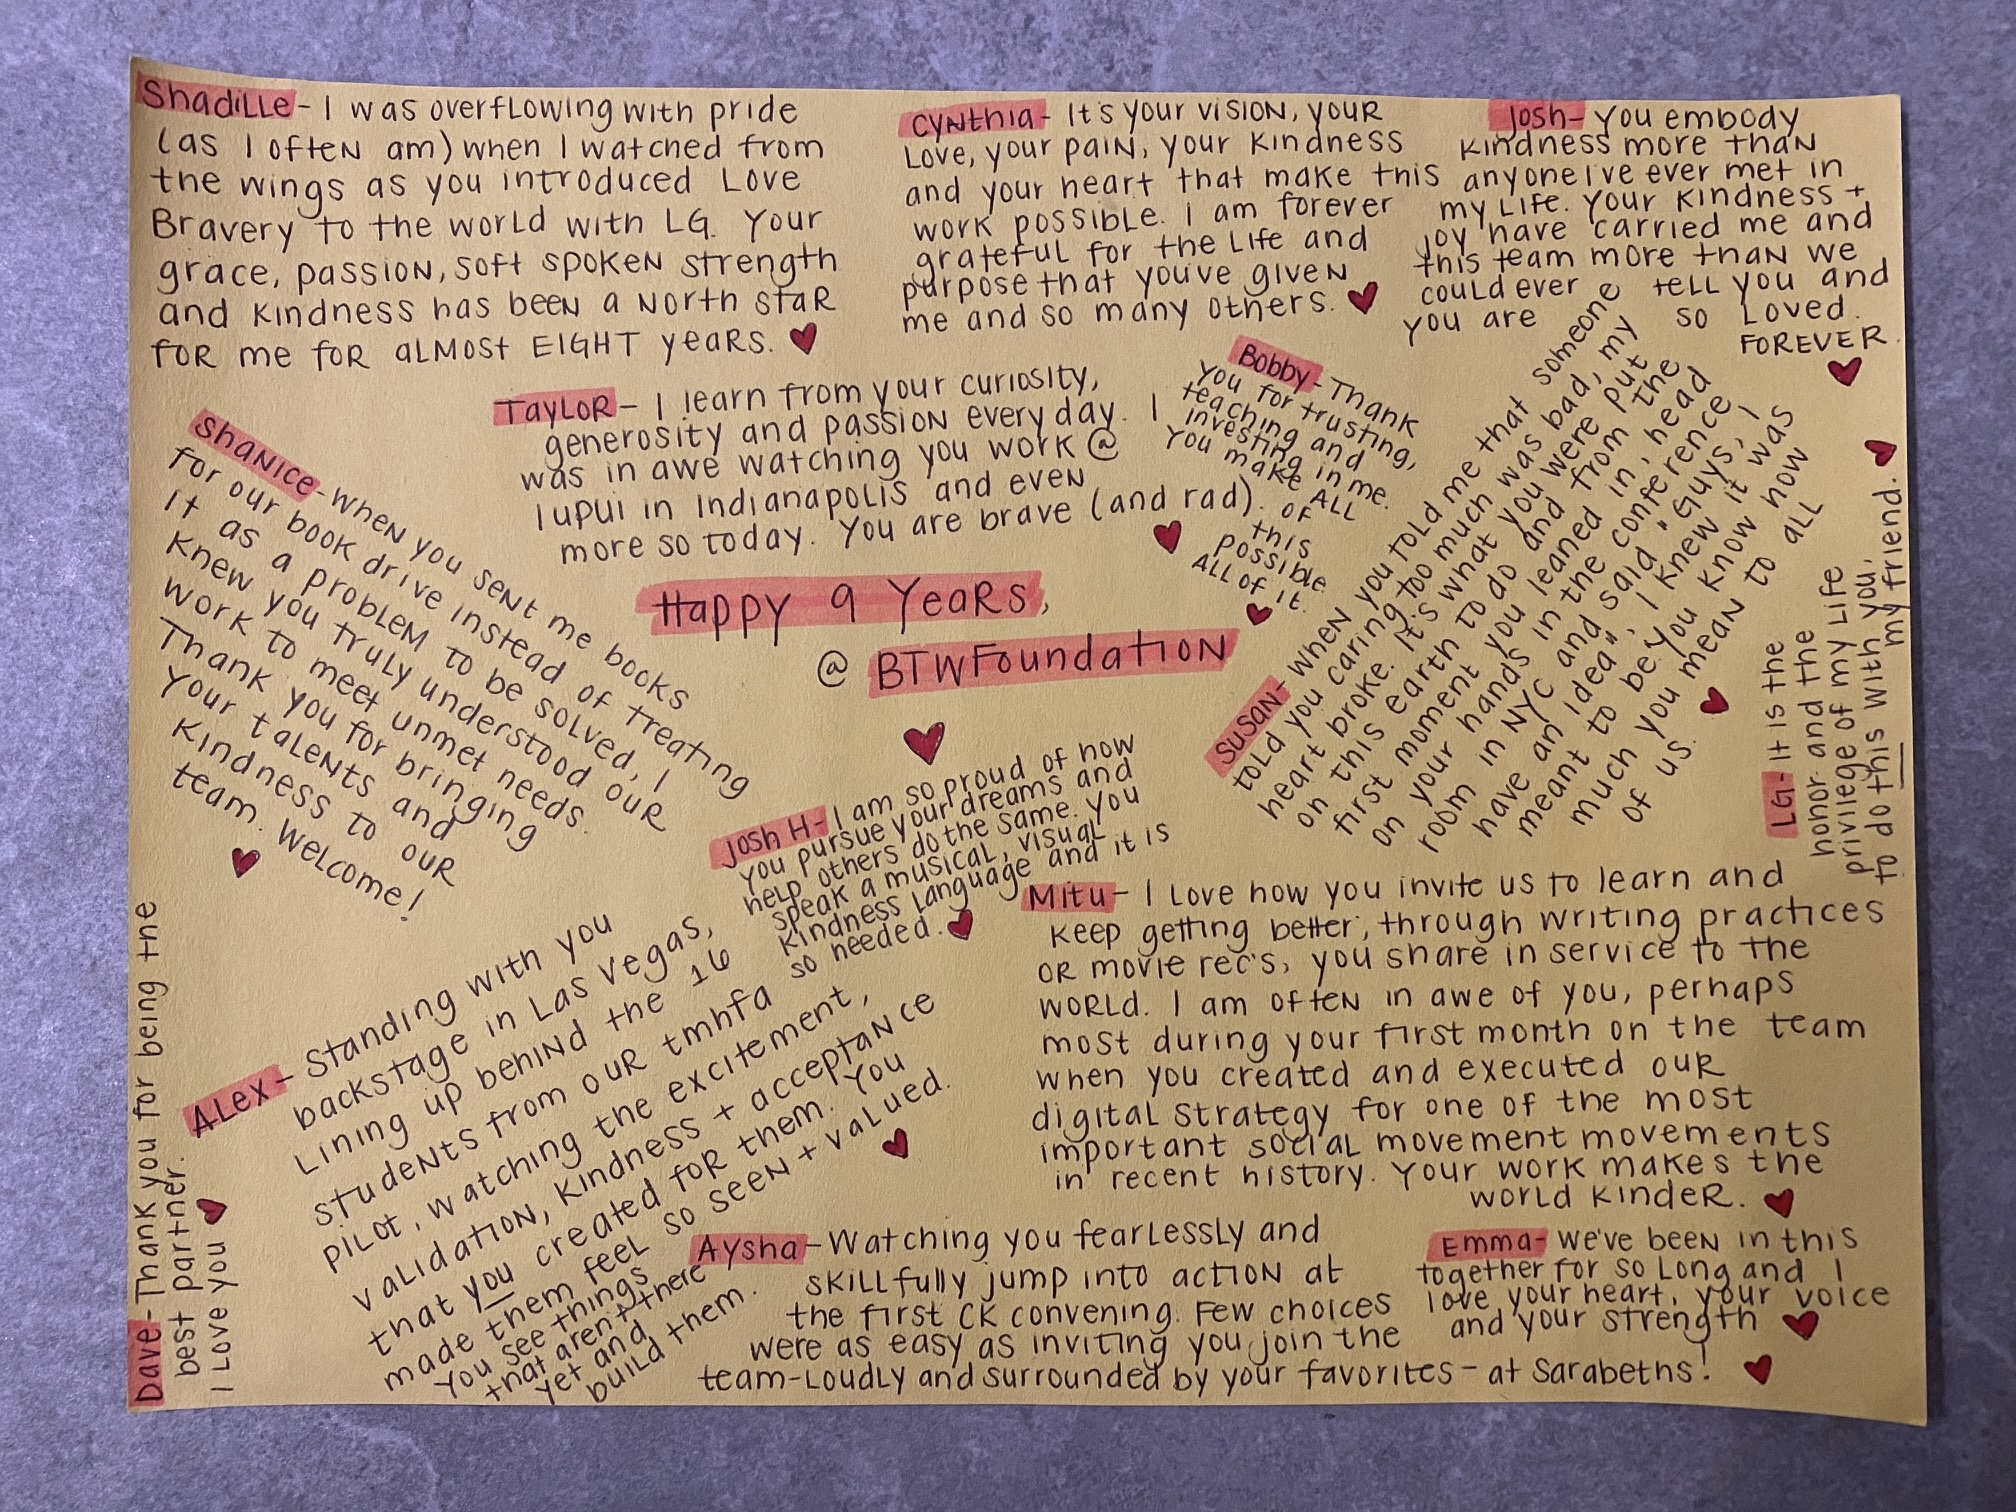 Shadille - I was overflowing with pride
(as I often am) when I watched from
the wings as you introduced Love
Bravery to the world with LG. Your
grace, passion, soft spoken strength
and kindness has been a North Star
for me for almost EIGHT years.
Cynthia - It's your vision, your
love, your pain, your kindness
and your heart that make this
work possible. I am forever
grateful for the life and
purpose that you've given
me and so many others.
Josh - You embody
kindness more than
anyone I've ever met in
my life. Your kindness +
joy have carried me and
this team more than we
could ever tell you and
you are so loved.
FOREVER.
Taylor - I learn from your curiosity,
generosity and passion every day. I
was in awe watching you work @
Iupui in Indianapolis and even
more so today. You are brave (and rad).
Bobby - Thank
you for trusting,
teaching and
investing in me.
You make ALL
of
this
possible.
All of it.
Shanice - When you sent me books
for our book drive instead of treating
it as a problem to be solved, I
knew you truly understood our
work to meet unmet needs.
Thank you for bringing
your talents and
kindness to our
team. Welcome!
Happy 9 Years,
@ BTWFoundation
Susan - When you told me that someone
told you caring too much was bad, my
heart broke. It's what you were put
on this earth to do and from the
first moment you leaned in, head
on your hands in the conference
room in NYC and said "Guys, I
have an idea", I knew it was
meant to be. You know how
much you mean to all
of us.
LG - It is the
honor and the
privilege of my life
to do this with you,
my friend.
Josh H - I am so proud of how
you pursue your dreams and
help others do the same. You
speak a musical, visual
kindness language and it is
so needed.
Mitu - I love how you invite us to learn and
keep getting better; through writing practices
or movie rec's, you share in service to the
world. I am often in awe of you, perhaps
most during your first month on the team
when you created and executed our
digital strategy for one of the most
important social movement movements
in recent history. Your work makes the
world kinder.
Alex - Standing with you
backstage in Las Vegas,
lining up behind the 16
students from our tmhfa
pilot, watching the excitement,
validation, kindness + acceptance
that you created for them. You
made them feel so seen + valued.
You see things
that aren't there
yet and
build them.
Dave - Thank you for being the
best partner.
I love you
Aysha - Watching you fearlessly and
skillfully jump into action at
the first CK convening. Few choices
were as easy as inviting you join the
team - loudly and surrounded by your favorites - at Sarabeths!
Emma - We've been in this
together for so long and I
love your heart, your voice
and your strength